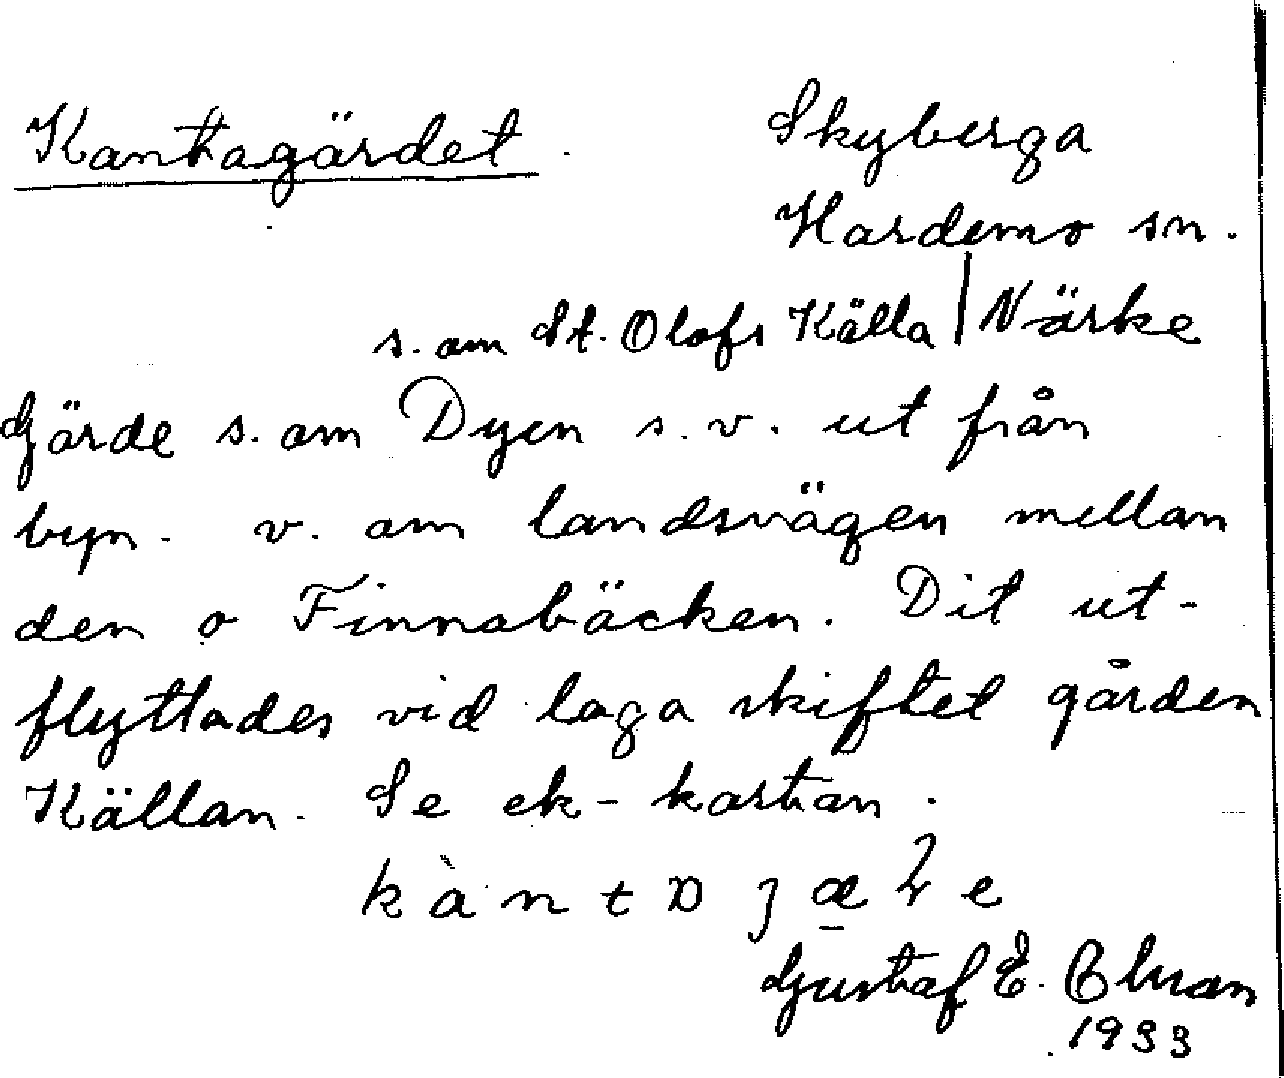 Kantagärdet.
Skyberga
Hardemo sn.
Närke
s. om St. Olofs Källa
Gärde s. om Dyen s.v. ut från
byn. v. om landsvägen mellan
den o Finnabäcken. Dit ut-
flyttades vid laga skiftet gården
Källan. Se ek-kartan.
Gustaf E.
1933